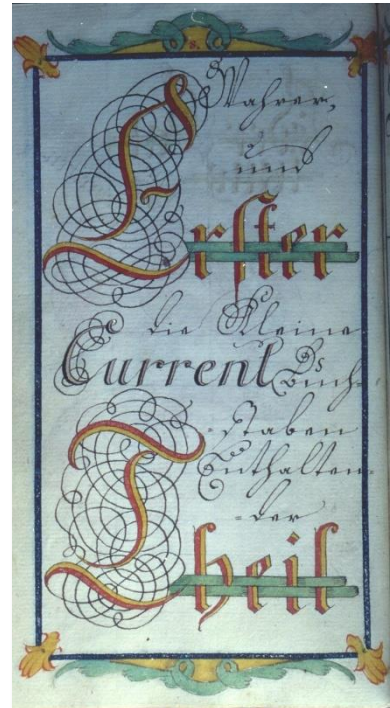 8.
Wahrer,
und
Erster
die Kleine
Current Buch-
-staben
Enthalten-
-der
Theil